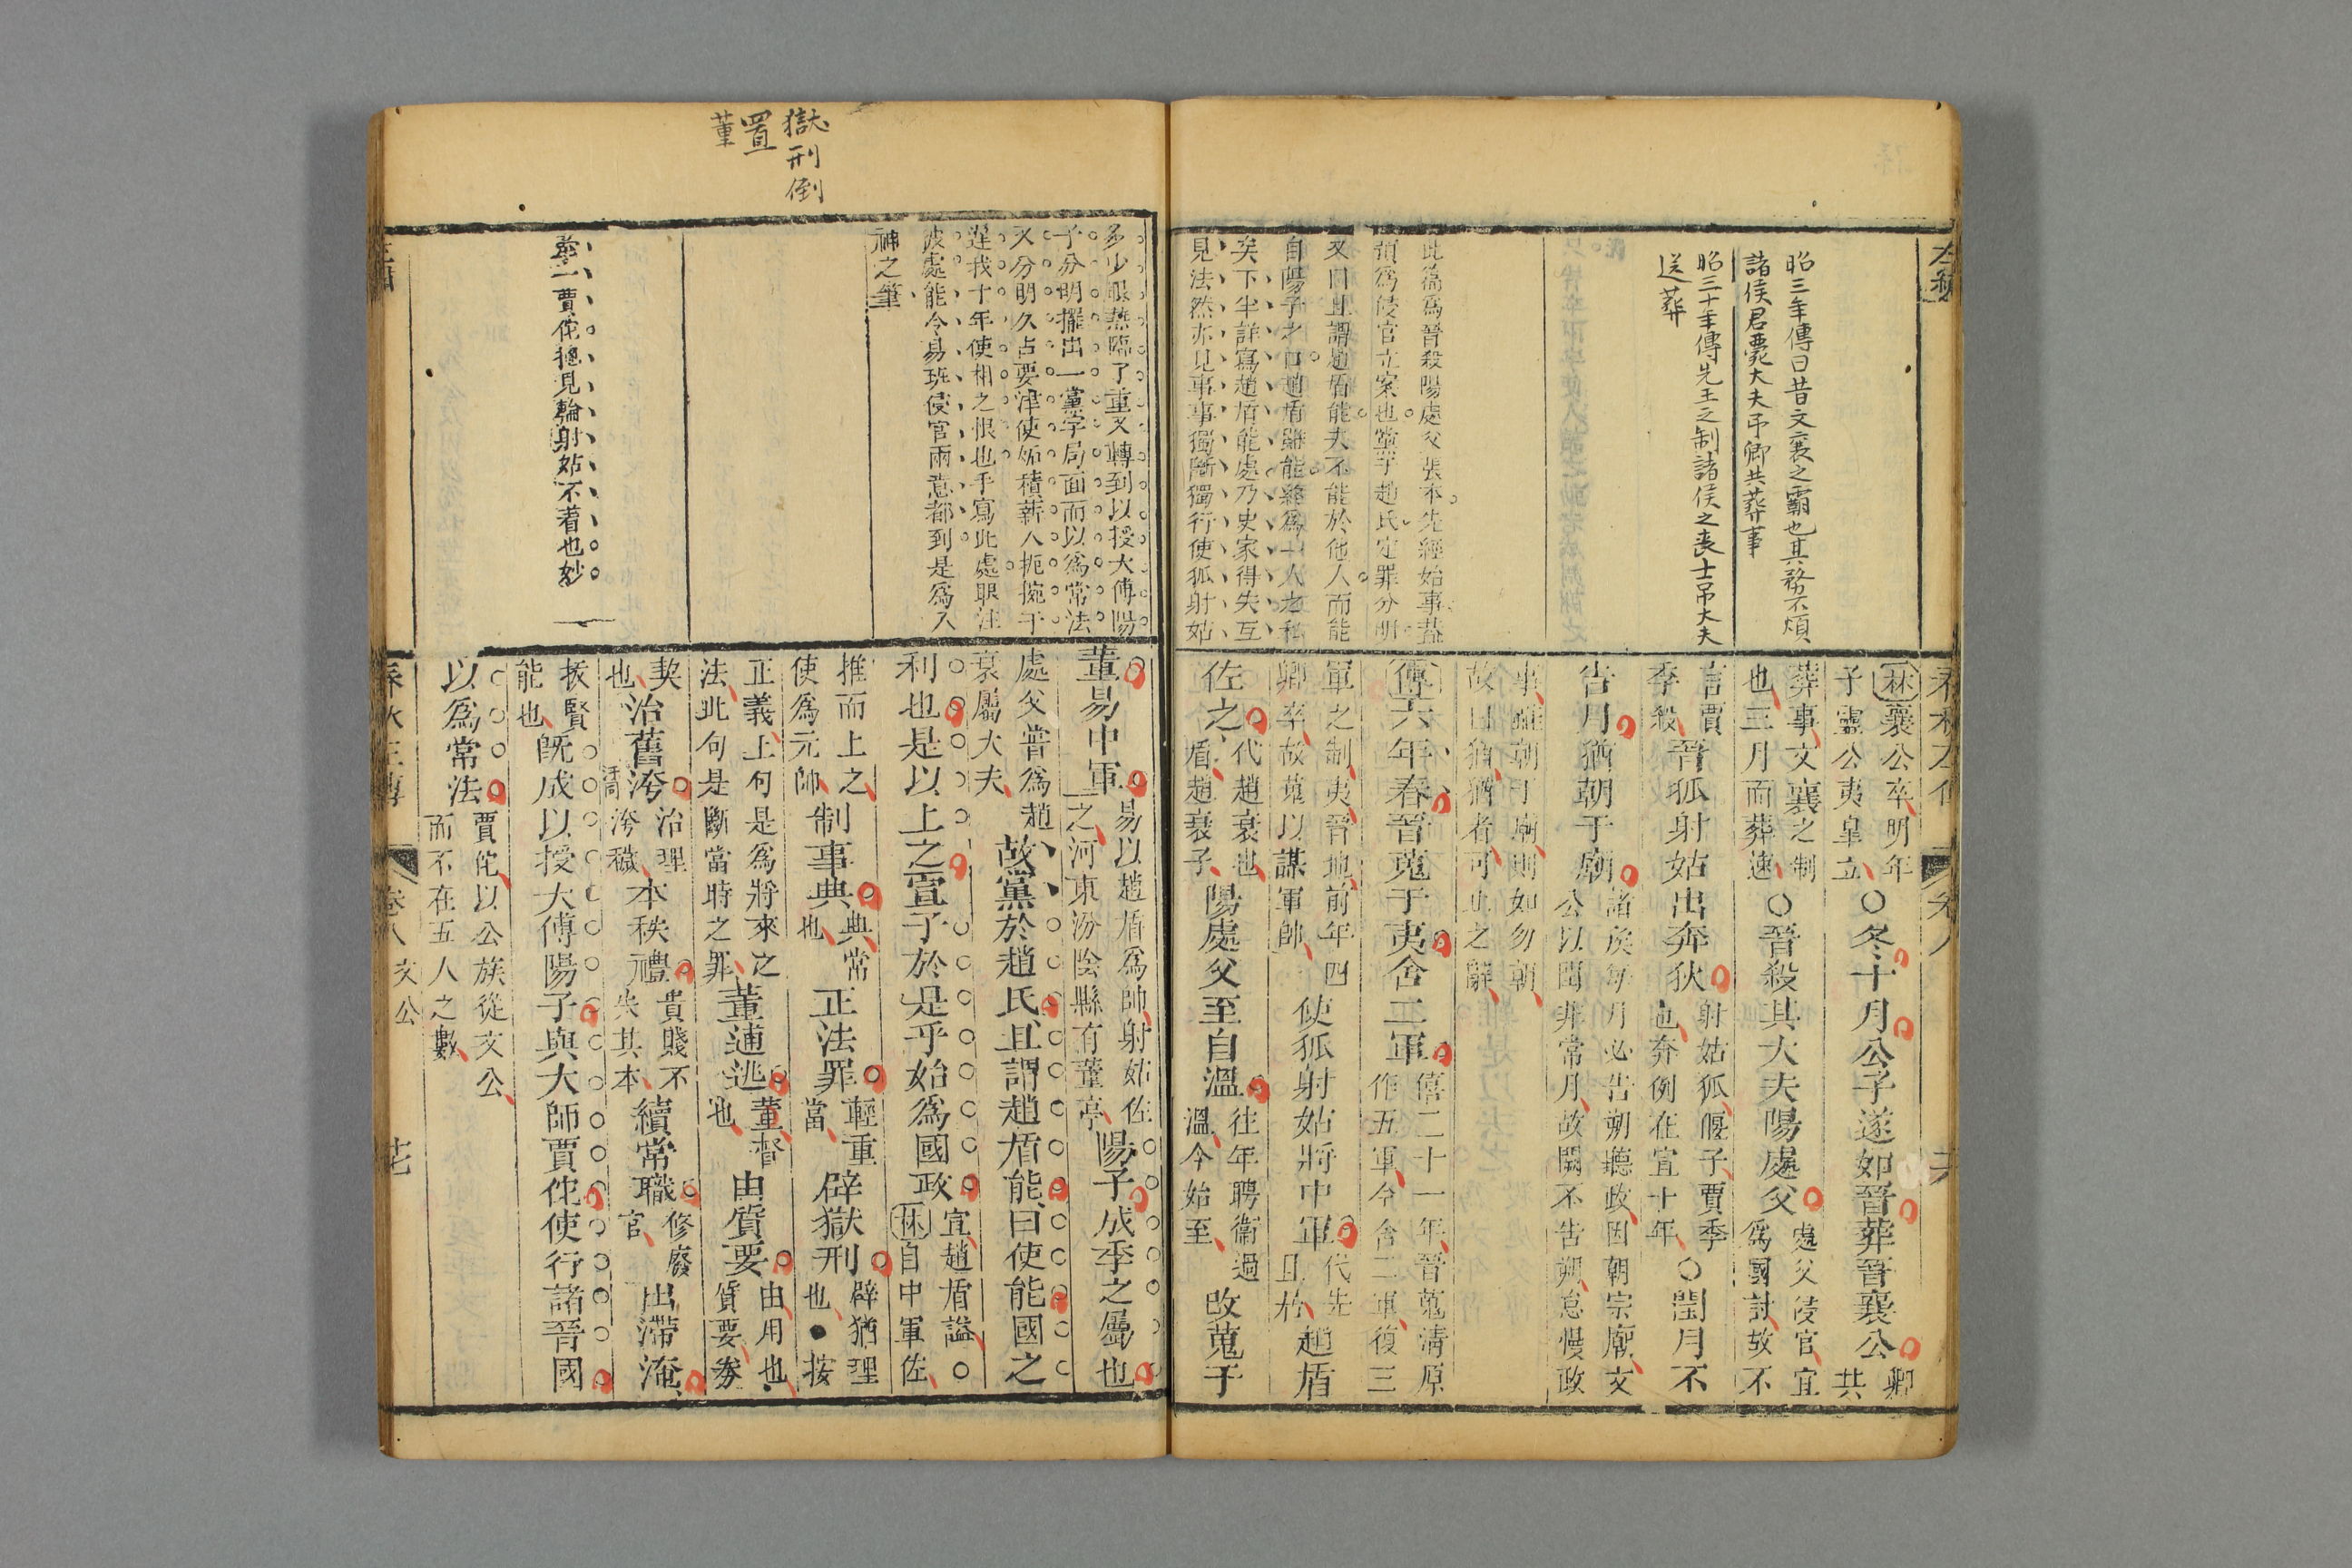 昭三年傳曰昔文襄之霸也其務不煩
諸侯君薨大夫弔卿共葬事
昭三十年傳先王之制諸侯之喪士弔大夫
送葬
此篇爲晉殺陽處父張本先經始事蓋
預爲侵官立案也黨于趙氏定罪分明
又曰且謂趙盾能夫不能於他人而能
自陽子之口趙盾雖能終爲一人之私
矣下半詳寫趙盾能處乃史家得失互
見法然亦見事事獨斷獨行使狐射姑
林襄公卒明年
子靈公夷皐立
○冬十月公子遂如晉葬晉襄公
卿共
葬事文襄之制
也三月而葬速
○晉殺其大夫陽處父
處父侵官宜
爲國討故不
言賈
季殺
晉狐射姑出奔狄
射姑狐偃子賈季
也奔例在宣十年
○閏月不
告月猶朝于廟
諸侯每月必告朔聽政因朝宗廟文
公以閏非常月故闕不告朔怠慢政
事雖朝于廟則如勿朝
故曰猶猶者可止之辭
傳六年春晉蒐于夷舍二軍
僖三十一年晉蒐清原
作五軍今舍二軍復三
軍之制夷晉地前年四
卿卒故蒐以謀軍帥
使狐射姑將中軍
代先
且居
趙盾
佐之
代趙衰也
盾趙衰子
陽處父至自溫
往年聘衞過
溫今始至
改蒐于
獄刑倒
置
董
多少眼熱臨了重又轉到以授大傅陽
子分明擺出一黨字局面而以爲常法
又分明久占要津使妬積薪人扼腕于
遲我十年使相之恨也乎寫此處眼注
彼處能令易班侵官兩意都到是爲入
神之筆
董易中軍
易以趙盾爲帥射姑佐
之河東汾陰縣有董亭
陽子成季之屬也
處父嘗爲趙
衰屬大夫
故黨於趙氏且謂趙盾能曰使能國之
利也是以上之宣子於是乎始爲國政
宣趙盾謚○
林自中軍佐
推而上之
使爲元帥
制事典
典常
也
正法罪
輕重
當
辟獄刑
辟猶理
也●按
正義上句是爲將來之
法此句是斷當時之罪
董逋逃
董督
也
由質要
由用也
質要券
契
也
治舊洿
治理
洿穢
本秩禮
貴賤不
失其本
續常職
修廢
官
出滯淹
拔賢
能也
既成以授大傅陽子與大師賈佗使行諸晉國
以爲常法
賈佗以公族從文公
而不在五人之數
春秋左傳
卷八
文公